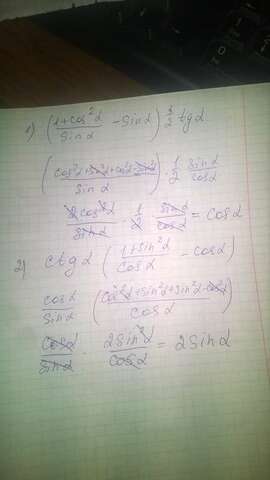 1) (1+cos²α / sinα − sinα) ½ tgα
(cos²α+sin²α+cos²α−sin²α / sinα) · ½ sinα / cosα
2cos²α / sinα · ½ sinα / cosα = cosα
2) ctgα (1+sin²α / cosα − cosα)
cosα / sinα (cos²α+sin²α+sin²α−cos²α / cosα)
cosα / sinα · 2sin²α / cosα = 2sinα